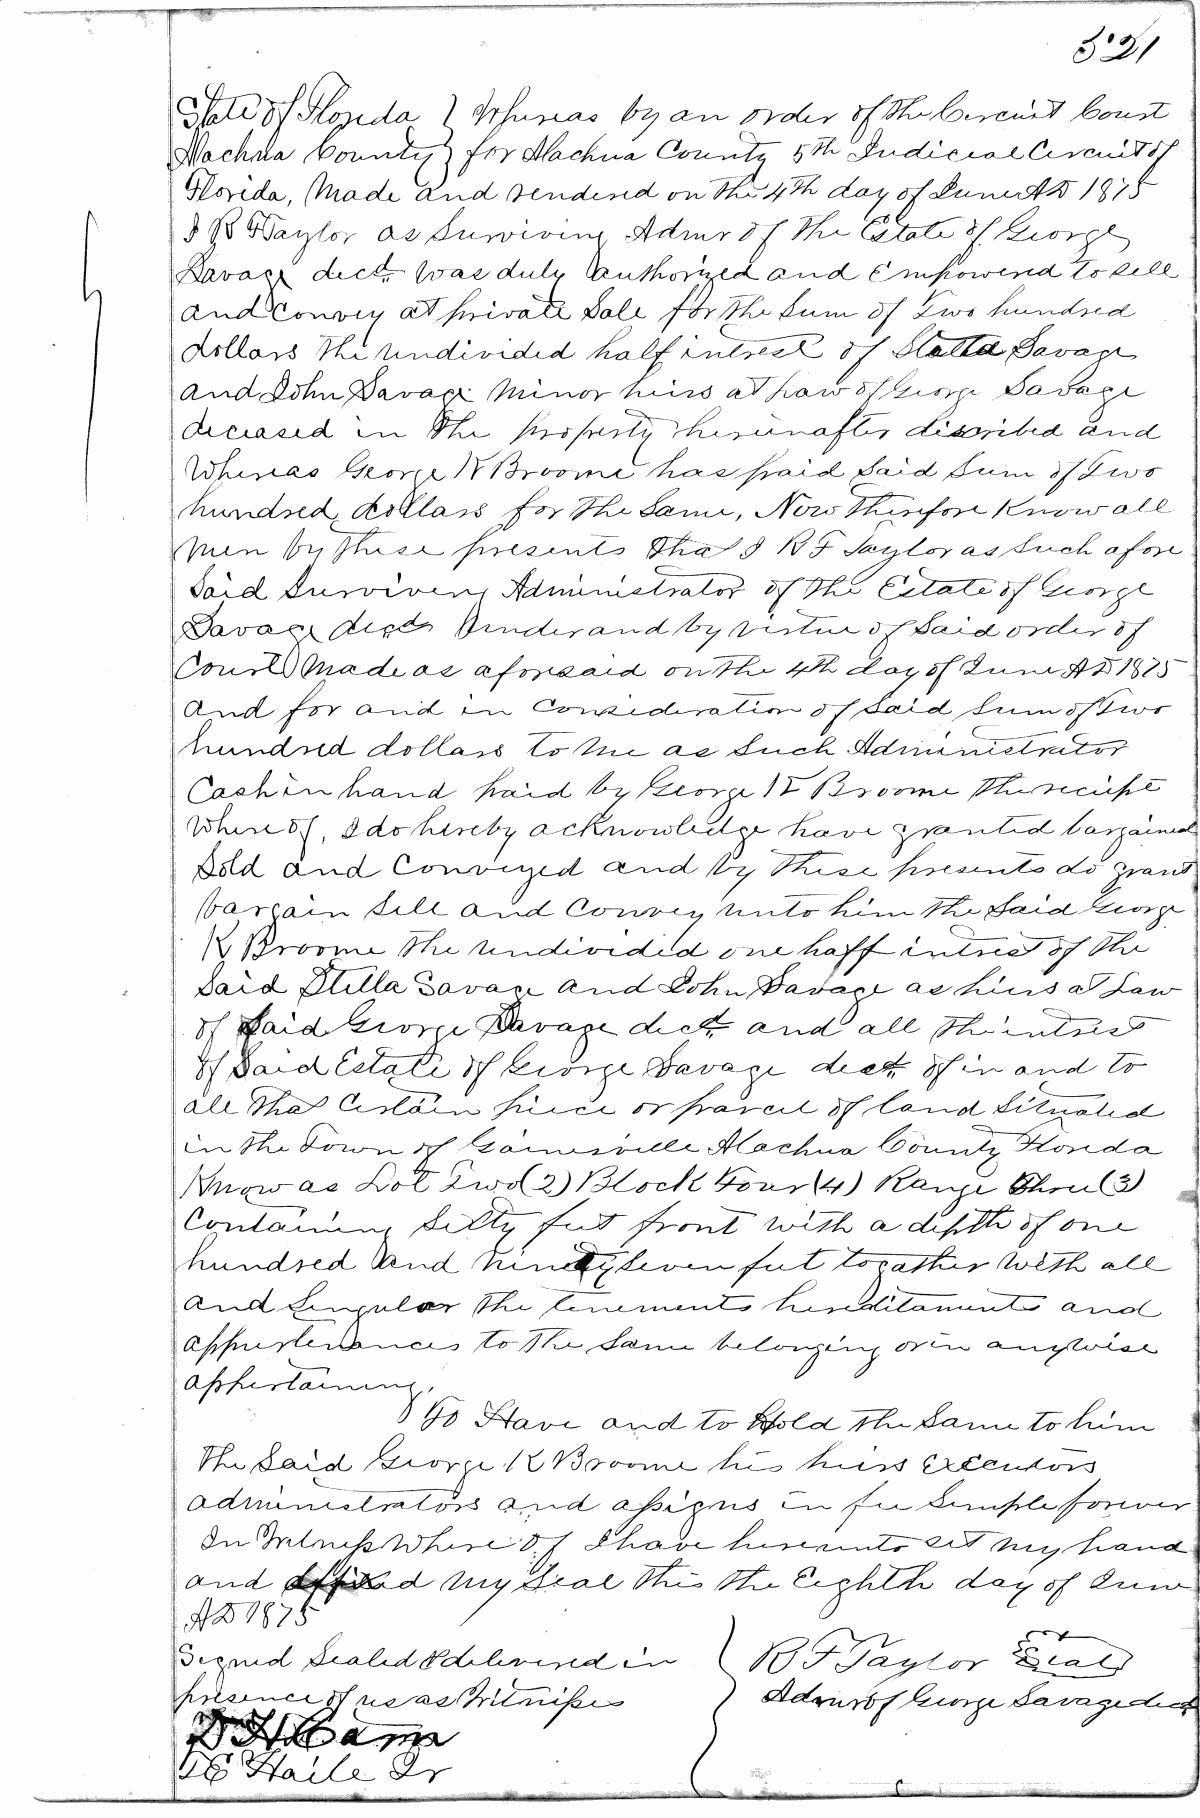 321
State of Florida } Whereas by an order of the Circuit Court
Alachua County } for Alachua County 5th Judicial Circuit of
Florida, Made and rendered on the 4th day of June AD 1875
I R F Taylor as Surviving Admr of the Estate of George
Savage decd. was duly authorized and Empowered to sell
and convey at private Sale for the Sum of Two hundred
dollars the undivided half intrest of Stella Savage
and John Savage Minor heirs at Law of George Savage
deceased in the property hereinafter discribed and
Whereas George K Broome has paid said Sum of Two
hundred dollars for the Same, Now Therefore Know all
Men by these presents that I R F Taylor as Such afore
Said Surviving Administrator of the Estate of George
Savage decd under and by virtue of Said order of
Court Made as aforesaid on the 4th day of June AD 1875
and for and in Consideration of Said Sum of Two
hundred dollars to me as Such Administrator
Cash in hand paid by George K Broome the reciept
Where of, I do hereby acknowledge have granted bargained
Sold and Conveyed and by these presents do grant
bargain Sell and Convey unto him the Said George
K Broome the undivided one half intrest of the
Said Stella Savage and John Savage as heirs at Law
of Said George Savage decd. and all the intrest
of Said Estate of George Savage decd. of in and to
all that Certain piece or parcel of land Situated
in the Town of Gainesville Alachua County Florida
Know as Lot Two (2) Block Four (4) Range Three (3)
Containing Sixty feet front with a depth of one
hundred and ninety Seven feet togather With all
and Singular the tenements hereditaments and
appurtenances to the Same belonging or in anywise
appertaining.
To Have and to Hold the Same to him
the Said George K Broome his heirs Executors
administrators and assigns in fee Simple forever
In Witness Where of I have hereunto set my hand
and affixed my Seal this the Eighth day of June
AD 1875
Signed Sealed & delivered in } R F Taylor Seal
presence of us as Witnesses } Admr of George Savage decd
D H Cam
T E Haile Jr